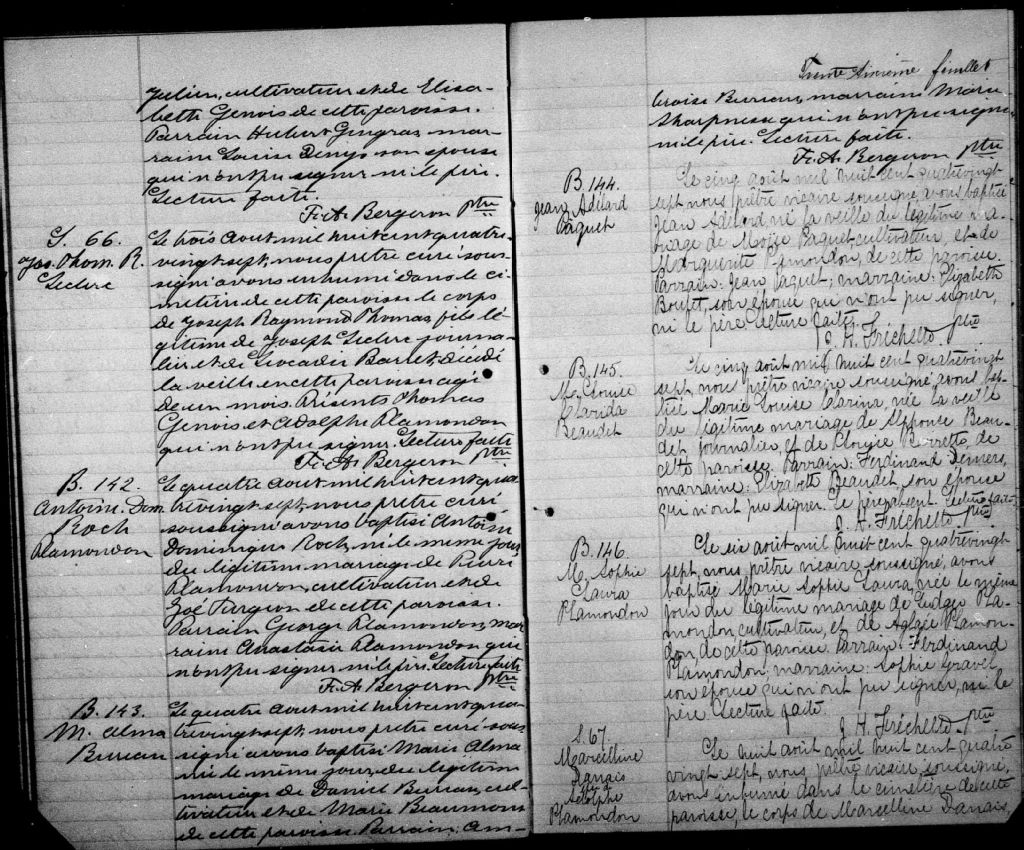 Julien, cultivateur et de Elisa-
beth Genois de cette paroisse.
Parrain Hubert Gingras, mar-
raine Louise Denys son epouse
qui n'ont pu signer ni le pere.
Lecture faite.
F. A. Bergeron ptre
S. 66.
Jos. Thom. R.
Leclerc
Le trois aout mil huit cent quatre-
vingt sept, nous pretre curé sous-
signé avons inhumé dans le ci-
metiere de cette paroisse le corps
de Joseph Raymond Thomas, fils lé-
gitime de Joseph Leclerc journa-
lier et de Leocadie Barret, décédé
la veille en cette paroisse agé
de un mois. Présents Thomas
Genois et Adolphe Plamondon
qui n'ont pu signer. Lecture faite
F. A. Bergeron ptre
B. 142
Antoine. Dom.
Roch
Plamondon
Le quatre aout mil huit cent qua
trevingt-sept, nous pretre curé
soussigné avons baptisé Antoine
Dominique Roch, né le meme jour
du legitime mariage de Pierre
Plamondon, cultivateur et de
Zoé Turgeon de cette paroisse.
Parrain George Plamondon, mar
raine Anastasie Plamondon qui
n'ont pu signer ni le pere. Lecture faite
F. A. Bergeron ptre
B. 143.
M. Alma
Bureau
Le quatre aout mil huit cent qua-
trevingt-sept, nous pretre curé sous
signé avons baptisé Marie Alma
née le meme jour, du legitime
mariage de Daniel Bureau, cul-
tivateur et de Marie Beaumont
de cette paroisse. Parrain: Am-
Trente sixième feuillet
broise Bureau, marraine Marie
qui n'ont pu signer
ni le pere. Lecture faite.
F. A. Bergeron ptre
B. 144.
Jean Adélard
Paquet
Le cinq août mil huit cent quatrevingt
sept nous prêtre vicaire soussigné, avons baptisé
Jean Adélard né la veille du légitime ma-
riage de Moïse Paquet cultivateur, et de
Marguerite Plamondon, de cette paroisse.
Parrain: Jean Paquet; marraine: Elizabeth
Boutet, son épouse qui n'ont pu signer,
ni le père. Lecture faite.
J. H. Fréchette ptre
B. 145.
M. Louise
Clarida
Beaudet
Le cinq août mil huit cent quatrevingt
sept, nous prêtre vicaire soussigné, avons bap-
tisé Marie Louise Clarina, née la veille
du légitime mariage de Alphonse Beau-
det, journalier, et de Clorgie de
cette paroisse. Parrain: Ferdinand Demers,
marraine: Elizabeth Beaudet, son épouse
qui n'ont pu signer. Le père absent. Lecture faite
J. H. Fréchette ptre
B. 146.
M. Sophie
Laura
Plamondon
Le six août mil huit cent quatrevingt
sept, nous prêtre vicaire soussigné, avons
baptisé Marie Sophie Laura, née le même
jour du légitime mariage de Pla-
mondon cultivateur, et de Aglaée Plamon-
don de cette paroisse. Parrain: Ferdinand
Plamondon, marraine: Sophie Gravel,
son épouse qui n'ont pu signer, ni le
père. Lecture faite.
J. H. Fréchette ptre
S. 67.
Marcelline
Danais
Adolphe
Plamondon
Le huit août mil huit cent quatre
vingt sept, nous prêtre vicaire, soussigné,
avons inhumé dans le cimetière de cette
paroisse, le corps de Marcelline Danais